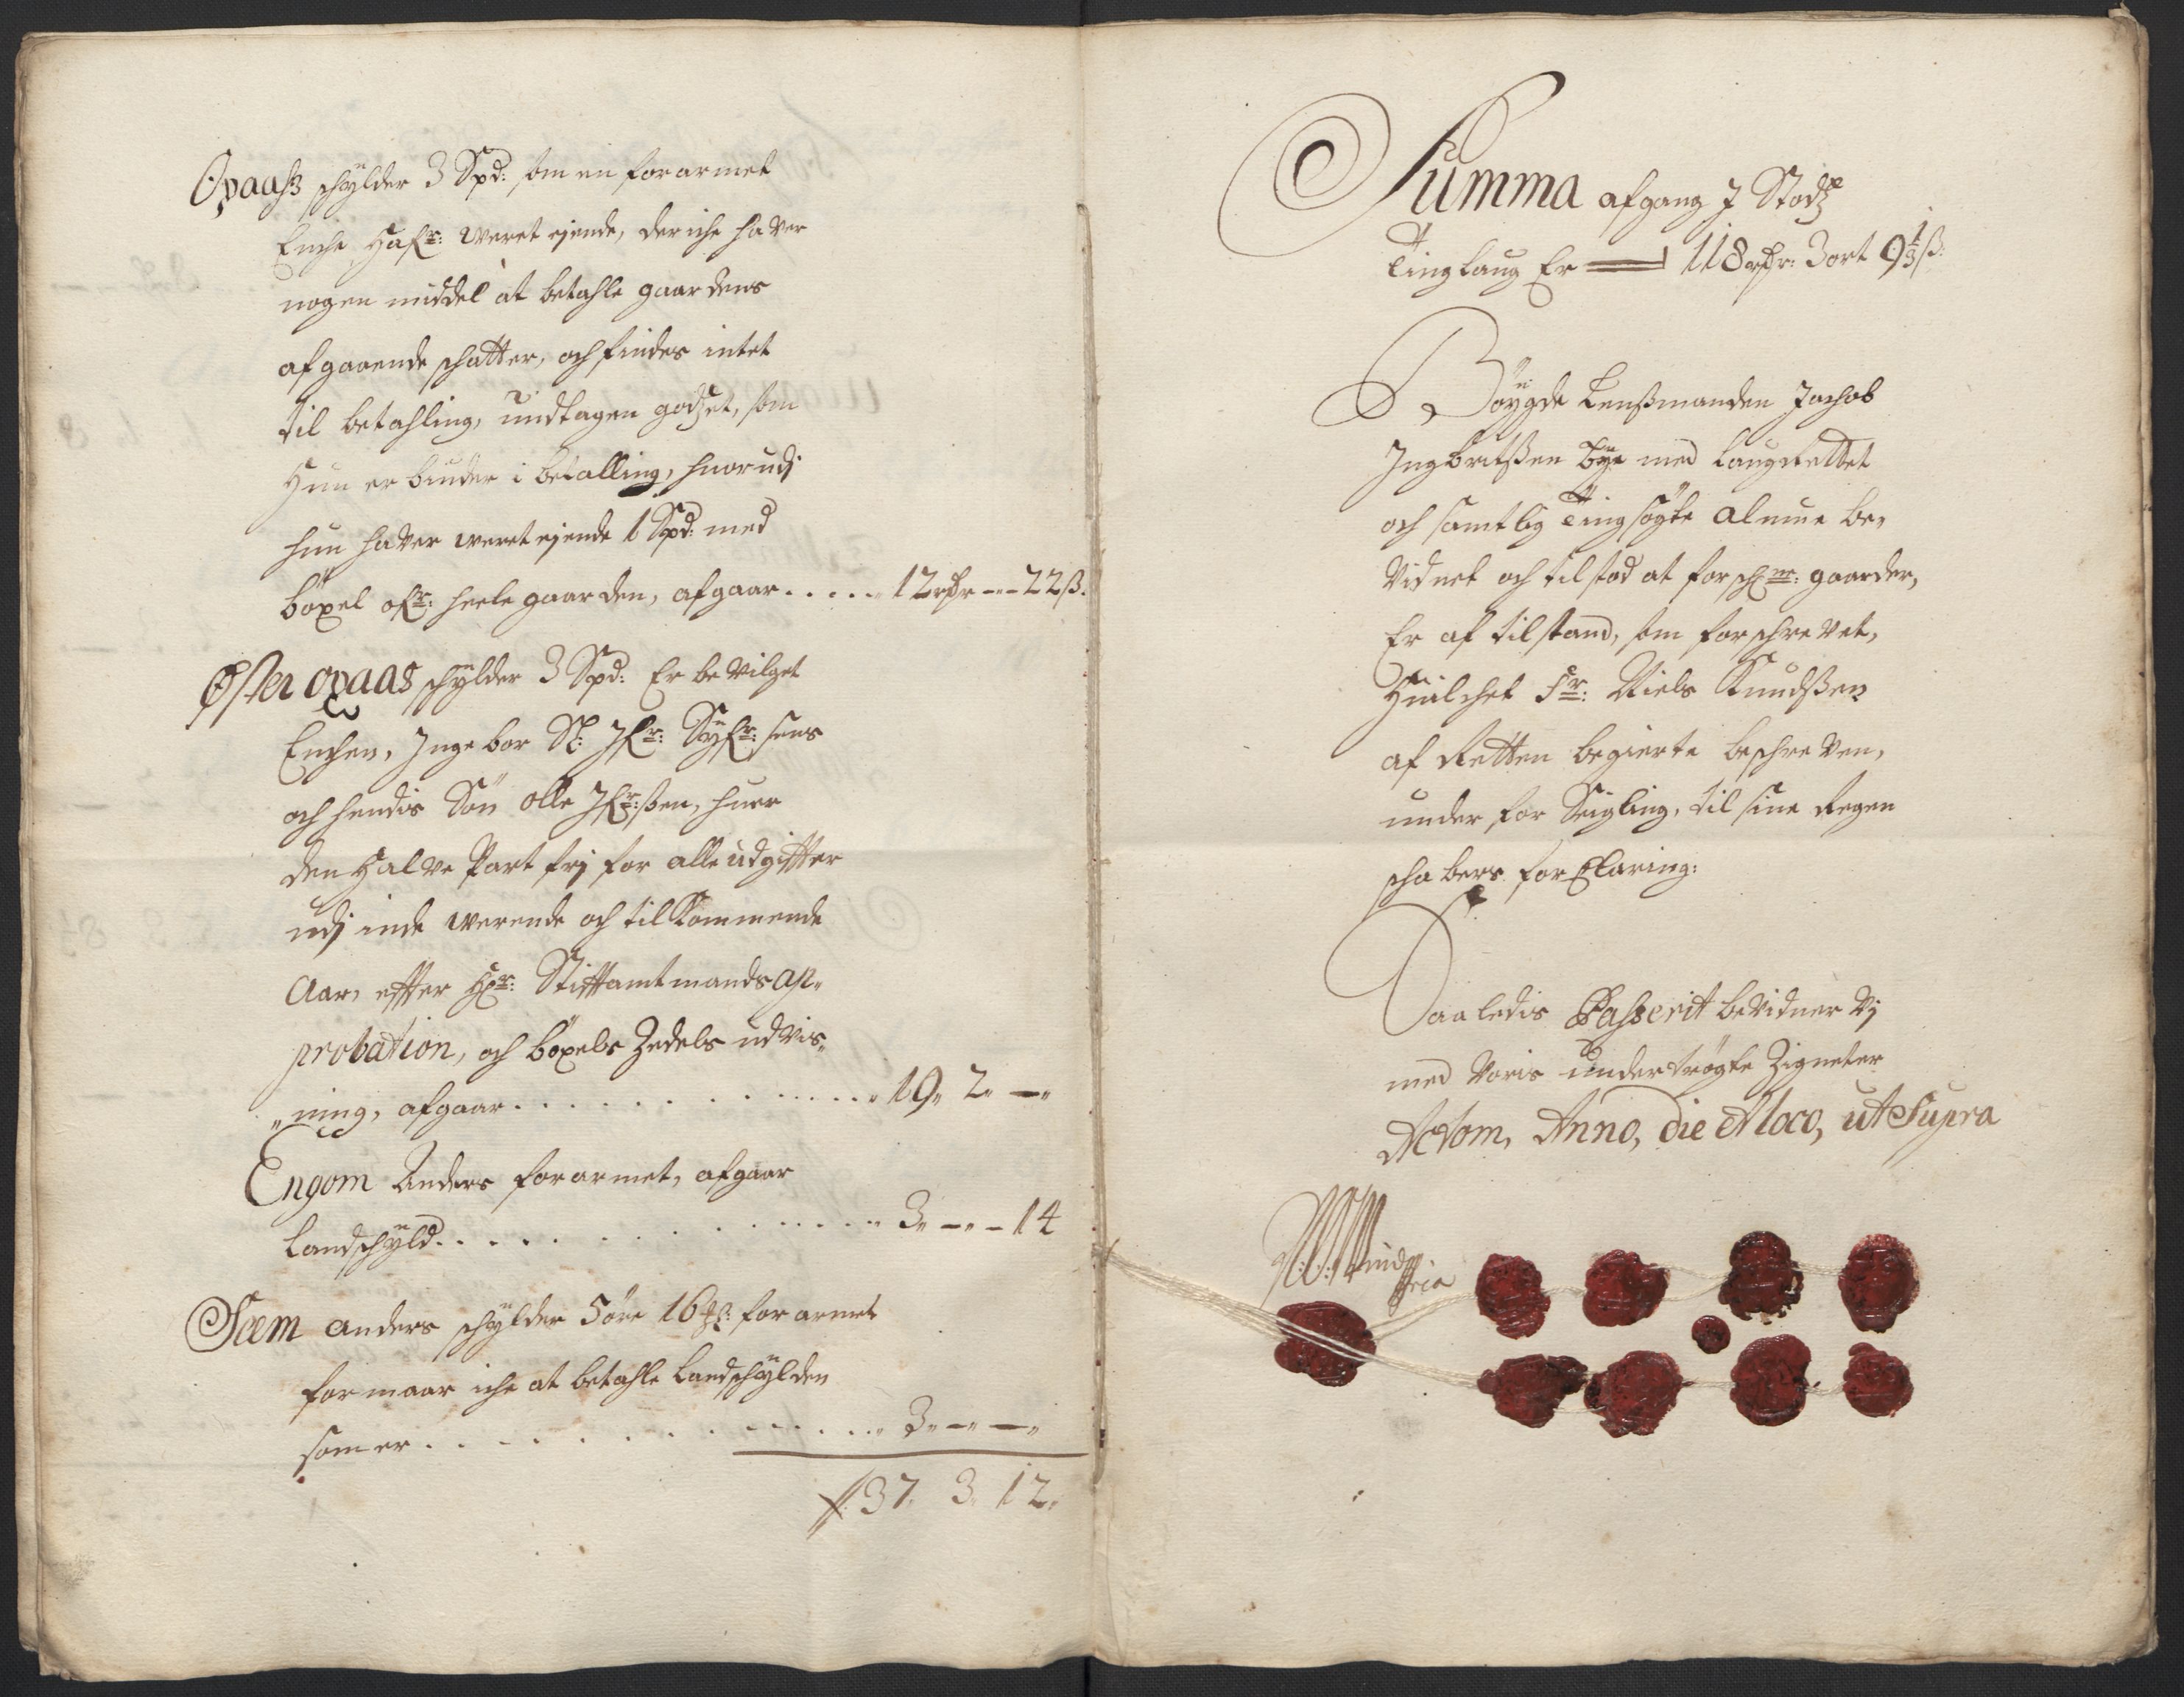 Opaahs schÿlder 3 Spd: som en forarmet
Enche Hafr: weret ejende, der iche haver
nogen middel at betahle gaardens
afgaaende schatter, och findes intet
til betahling, undtagen godzet, som
Hun er binder i betalling, huorudj
hun haver weret ejende 1 Spd: med
böxel ofr: heele gaarden, afgaar ..... 12 rdr --- 22 ß.
Øster opaas schÿlder 3 Spd: Er bevilget
Enchen, Ingebor Sl: Ifr: Syfr:sens
och hendis Søn olle Ifr:ßen, huer
den Halve Part frj for alle udgiffter
udj inde werende och tilkommende
Aar, effter Hr: Stifftamtmands ap„
probation, och böxels Zedels udvis„
„ning, afgaar ............ 19„ 2„ —„
Engom Anders forarmet, afgaar
Landschÿld ............ 3„ —„ — 14
Seem Anders schÿlder 5 öre 16 forarmet
formaar iche at betahle Landschÿlden
som er ............ 3„ —„ —„
37. 3. 12.
Summa afgang J Stodz
Tinglaug Er 118 rdr: 3 ort 9 1/3 ß:
Böÿgde Lenßmanden Jachob
Ingbritßen Bÿe med Laugrettet
och samtlig Ting søgte Almue be„
vidnet och tilstod at forschr: gaarder,
Er af tilstand, som forschrevet,
Huilchet Sr: Niels Knudßen
af Retten begierte beschreven,
under for Seigling, til sine Regen
schabers for Claring:
Saaledis Passerit bevidner Vj
med Voris undertrögte Zigneter
Actom, Anno, die et loco, ut Supra